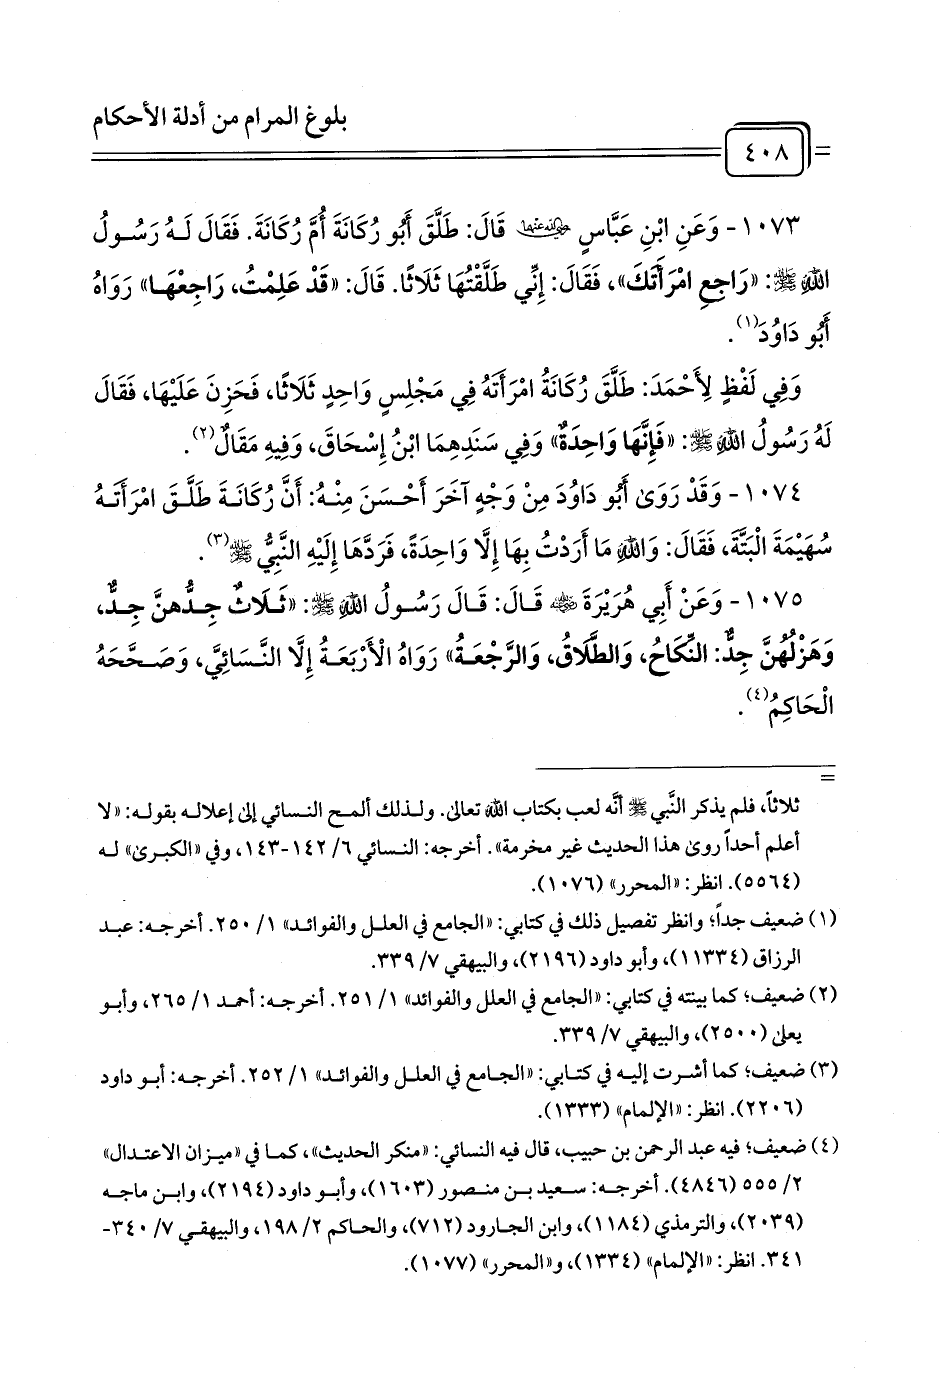 بلوغ المرام من أدلة الأحكام
٤٠٨
١٠٧٣- وَعَنِ ابْنِ عَبَّاسٍ رضي الله عنهما قَالَ: طَلَّقَ أَبُو رُكَانَةَ أُمَّ رُكَانَةَ. فَقَالَ لَهُ رَسُولُ
اللهِ ﷺ: «رَاجِعِ امْرَأَتَكَ»، فَقَالَ: إِنِّي طَلَّقْتُهَا ثَلَاثًا. قَالَ: «قَدْ عَلِمْتُ، رَاجِعْهَا» رَوَاهُ
أَبُو دَاوُدَ(١).
وَفِي لَفْظٍ لِأَحْمَدَ: طَلَّقَ رُكَانَةُ امْرَأَتَهُ فِي مَجْلِسٍ وَاحِدٍ ثَلَاثًا، فَحَزِنَ عَلَيْهَا، فَقَالَ
لَهُ رَسُولُ اللهِ ﷺ: «فَإِنَّهَا وَاحِدَةٌ» وَفِي سَنَدِهِمَا ابْنُ إِسْحَاقَ، وَفِيهِ مَقَالٌ(٢).
١٠٧٤- وَقَدْ رَوَىٰ أَبُو دَاوُدَ مِنْ وَجْهٍ آخَرَ أَحْسَنَ مِنْهُ: أَنَّ رُكَانَةَ طَلَّقَ امْرَأَتَهُ
سُهَيْمَةَ الْبَتَّةَ، فَقَالَ: وَاللهِ مَا أَرَدْتُ بِهَا إِلَّا وَاحِدَةً، فَرَدَّهَا إِلَيْهِ النَّبِيُّ ﷺ(٣).
١٠٧٥- وَعَنْ أَبِي هُرَيْرَةَ رضي الله عنه قَالَ: قَالَ رَسُولُ اللهِ ﷺ: «ثَلَاثٌ جِدُّهنَّ جِدٌّ،
وَهَزْلُهُنَّ جِدٌّ: النِّكَاحُ، وَالطَّلَاقُ، وَالرَّجْعَةُ» رَوَاهُ الْأَرْبَعَةُ إِلَّا النَّسَائِيَّ، وَصَحَّحَهُ
الْحَاكِمُ(٤).
=
ثلاثاً، فلم يذكر النَّبي ﷺ أنَّه لعب بكتاب الله تعالى. ولذلك ألمح النسائي إلى إعلاله بقوله: «لا
أعلم أحداً روى هذا الحديث غير مخرمة». أخرجه: النسائي ٦/ ١٤٢-١٤٣، وفي «الكبرى» له
(٥٥٦٤). انظر: «المحرر» (١٠٧٦).
(١) ضعيف جداً؛ وانظر تفصيل ذلك في كتابي: «الجامع في العلل والفوائد» ١/ ٢٥٠. أخرجه: عبد
الرزاق (١١٣٣٤)، وأبو داود (٢١٩٦)، والبيهقي ٧/ ٣٣٩.
(٢) ضعيف؛ كما بينته في كتابي: «الجامع في العلل والفوائد» ١/ ٢٥١. أخرجه: أحمد ١/ ٢٦٥، وأبو
يعلى (٢٥٠٠)، والبيهقي ٧/ ٣٣٩.
(٣) ضعيف؛ كما أشرت إليه في كتابي: «الجامع في العلل والفوائد» ١/ ٢٥٢. أخرجه: أبو داود
(٢٢٠٦). انظر: «الإلمام» (١٣٣٣).
(٤) ضعيف؛ فيه عبد الرحمن بن حبيب، قال فيه النسائي: «منكر الحديث»، كما في «ميزان الاعتدال»
٢/ ٥٥٥ (٤٨٤٦). أخرجه: سعيد بن منصور (١٦٠٣)، وأبو داود (٢١٩٤)، وابن ماجه
(٢٠٣٩)، والترمذي (١١٨٤)، وابن الجارود (٧١٢)، والحاكم ٢/ ١٩٨، والبيهقي ٧/ ٣٤٠-
٣٤١. انظر: «الإلمام» (١٣٣٤)، و«المحرر» (١٠٧٧).